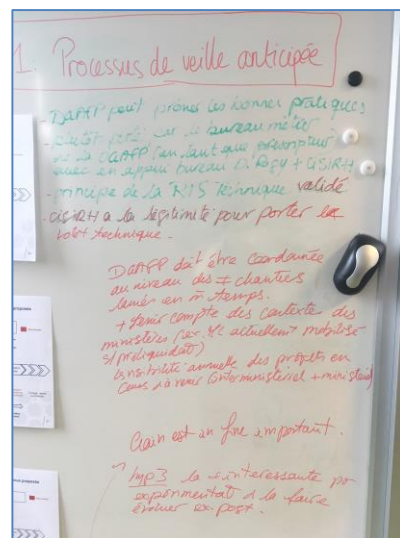 1. Processus de veille anticipée
DGAFP peut prôner les bonnes pratiques
- plutôt porté sur le bureau métier
de la DGAFP (en tant que prescripteur)
avec en appui bureau DiRgy + CISIRH
- principe de la RIS technique validé
- CISIRH a la légitimité pour porter le
volet technique.
DGAFP doit être coordonnée
au niveau des ≠ chantiers
lancés en m̂ temps.
+ tenir compte des contexte des
ministères (ex. actuellement mobilisé
s/ préliquidat°)
visibilité annuelle des projets en
cours à venir (interministériel + ministériel)
Gain est in fine important.
Imp 3 la + intéressante pr
expérimentat° à la faire
évoluer ex post.